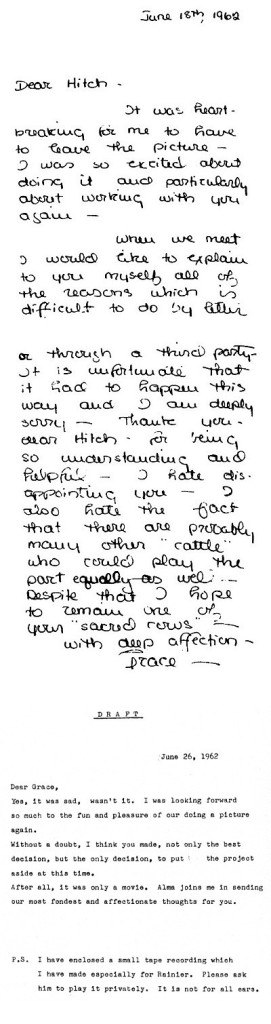 June 18th, 1962
Dear Hitch -
It was heart-
breaking for me to have
to leave the picture -
I was so excited about
doing it and particularly
about working with you
again -
When we meet
I would like to explain
to you myself all of
the reasons which is
difficult to do by letter
or through a third party -
It is unfortunate that
it had to happen this
way and I am deeply
sorry - Thank you -
dear Hitch - for being
so understanding and
helpful - I hate dis-
appointing you - I
also hate the fact
that there are probably
many other "cattle"
who could play the
part equally as well -
Despite that I hope
to remain one of
your "sacred cows" -
with deep affection -
Grace -
DRAFT
June 26, 1962
Dear Grace,
Yes, it was sad, wasn't it. I was looking forward
so much to the fun and pleasure of our doing a picture
again.
Without a doubt, I think you made, not only the best
decision, but the only decision, to put the project
aside at this time.
After all, it was only a movie. Alma joins me in sending
our most fondest and affectionate thoughts for you.
P.S. I have enclosed a small tape recording which
I have made especially for Rainier. Please ask
him to play it privately. It is not for all ears.